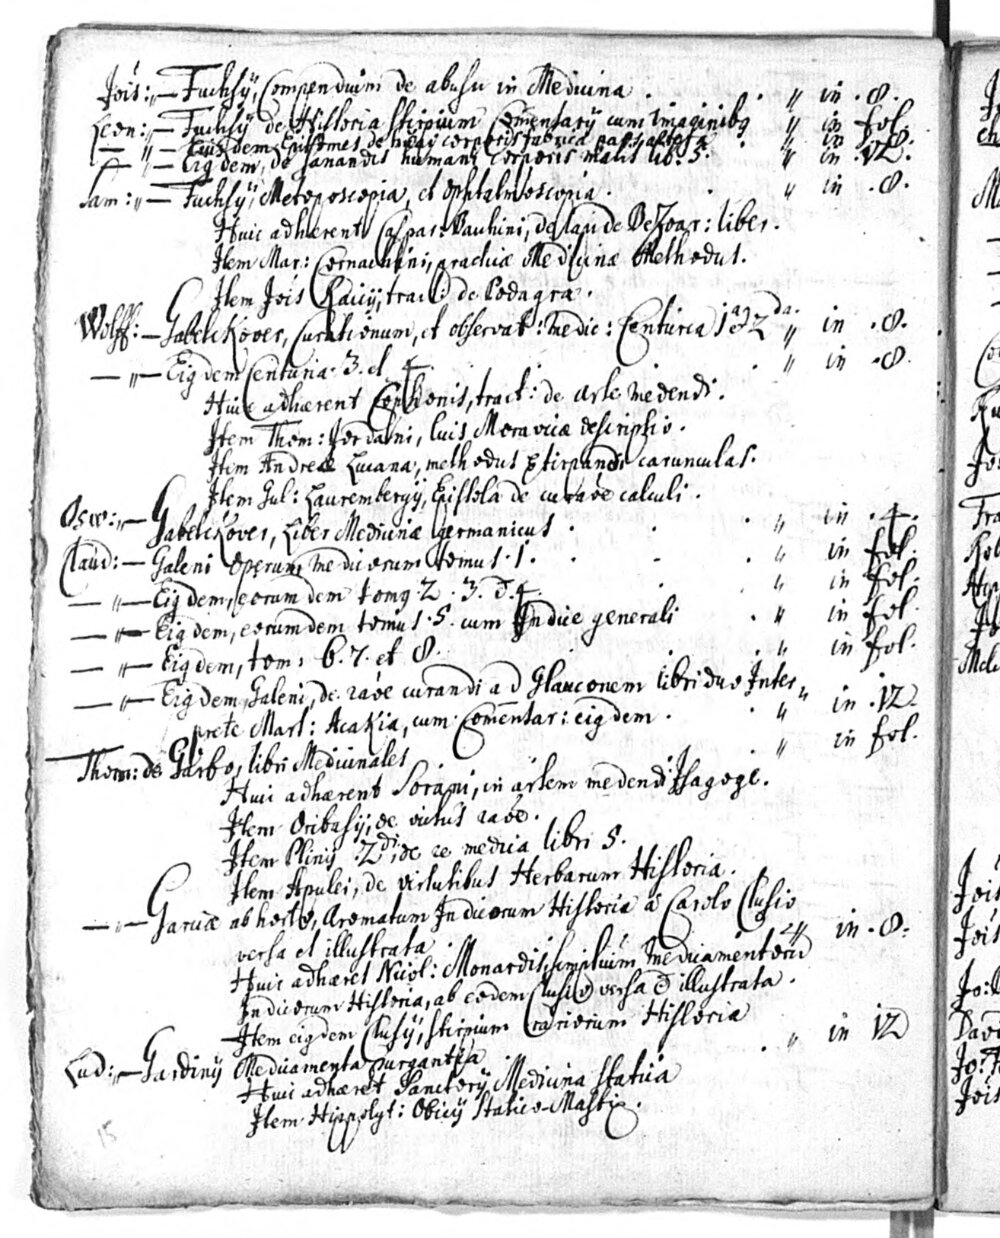 Jois: „ — Fuchsÿ, Compendium de abusu in Medicina . . „ in . 8.
Leon: „ — Fuchsÿ de Historia stirpium Comentarÿ cum Imaginibq „ in fol.
— „ — Eiusdem Epitomes de hum: corporis fabrica „ in 8.
— „ — Eigdem, de sanandis humani corporis malis lib. 5. „ in . 12.
Sam: „ — Fuchsÿ, Metoposcopia, et ophtalmoscopia . . „ in . 8.
Huic adhærent Caspar: Bauhini, de lapide Bezoar: liber.
Item Mar: Cornachini, practicæ Medicinæ Methodus.
Item Jois Raicÿ, tract: de Podagra .
Wolff: — Gabelckover, Curationum, et observat: medic: Centuria 1a et 2da. „ in . 8.
— „ — Eigdem Centuria . 3. et 4. . „ in . 8.
Huic adhærent Cophonis, tract: de arte medendi.
Item Thom: Jordani, luis Moravicæ descriptio.
Item Andreæ Lucana, methodus extirpandi carunculas.
Item Gul: Laurembergÿ, Epistola de curaõe calculi .
Osw: „ — Gabelckover, Liber Medicinæ Germanicus . . „ in . 4.
Claud: — Galeni operum medicorum tomus . 1. . . „ in fol.
— „ — Eigdem, eorumdem tomq 2 . 3. et 4. „ in fol.
— „ — Eigdem, eorumdem tomus . 5. cum Indice generali . „ in fol.
— „ — Eigdem, tom: 6. 7. et 8. . „ in fol.
— „ — Eigdem, Galeni, de raõe curandi ad Glauconem libri duo Inter-
prete Mart: Acakia, cum Comentar: eigdem . . „ in . 12.
Thom: de Garbo, libri Medicinales . „ in fol.
Huic adhærent Sorani, in artem medendi Isagoge.
Item Oribasÿ, de victus raõe.
Item Plinÿ . 2di de re medica libri 5.
Item Apulei, de virtutibus Herbarum Historia .
— „ — Garciæ ab horto, Aromatum Indicorum Historia a Carolo Clusio
versa et illustrata . „ in . 8.
Huic adhæret Nicol: Monardis, simplicium medicamentorũ
Indicorum Historia, ab eodem Clusio versa et illustrata .
Item eigdem Clusÿ, stirpium rariorum Historia
Lud: „ — Gardinÿ Medicamenta purgantia . . „ in 12
Huic adhæret Sanctorÿ Medicina statica
Item Hippolyt: Obicÿ Statico-Mastix.
15